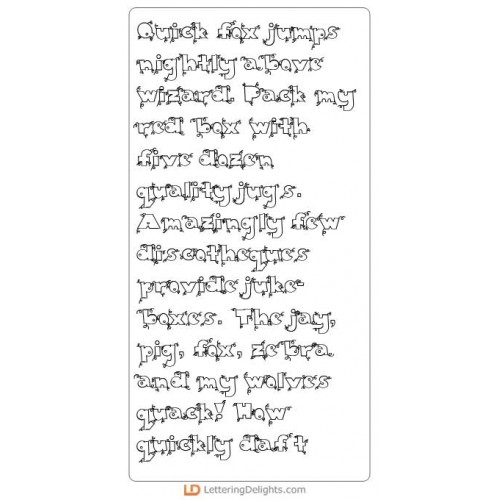 Quick fox jumps
nightly above
wizard. Pack my
red box with
five dozen
quality jugs.
Amazingly few
discotheques
provide juke-
boxes. The jay,
pig, fox, zebra
and my wolves
quack! How
quickly daft
LD LetteringDelights.com